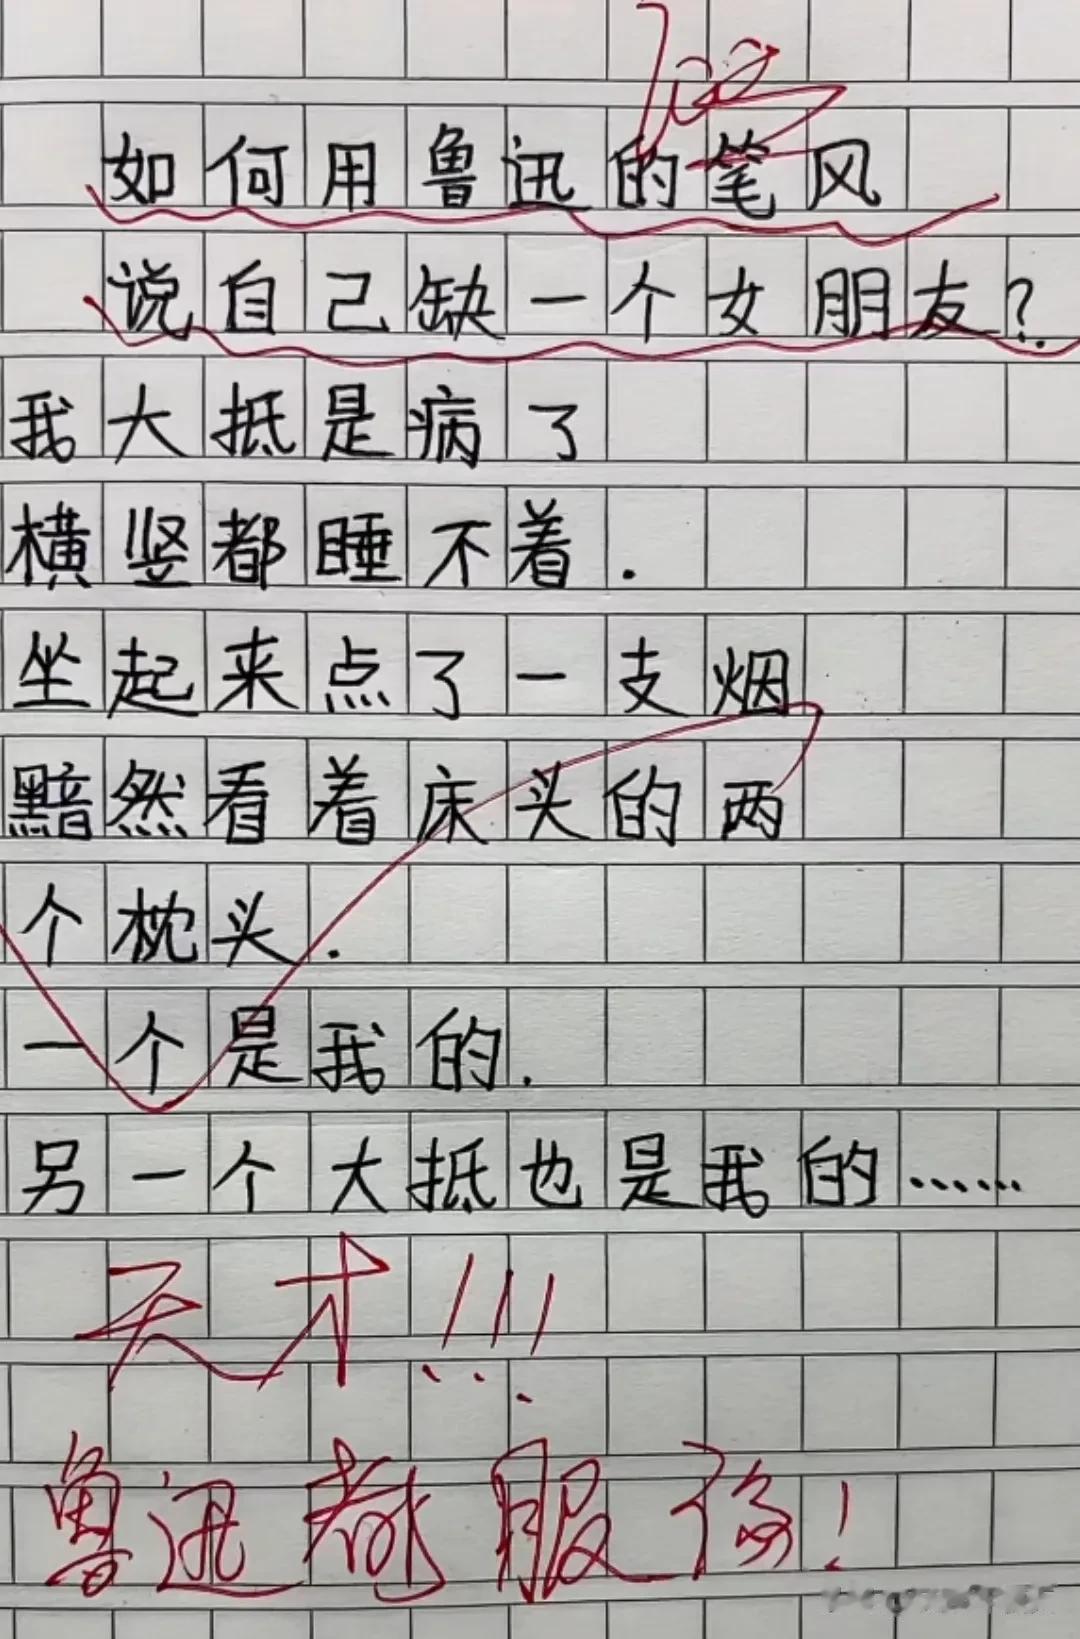 100
如何用鲁迅的笔风
说自己缺一个女朋友?
我大抵是病了
横竖都睡不着.
坐起来点了一支烟
黯然看着床头的两
个枕头.
一个是我的.
另一个大抵也是我的……
天才!!!
鲁迅都服你!